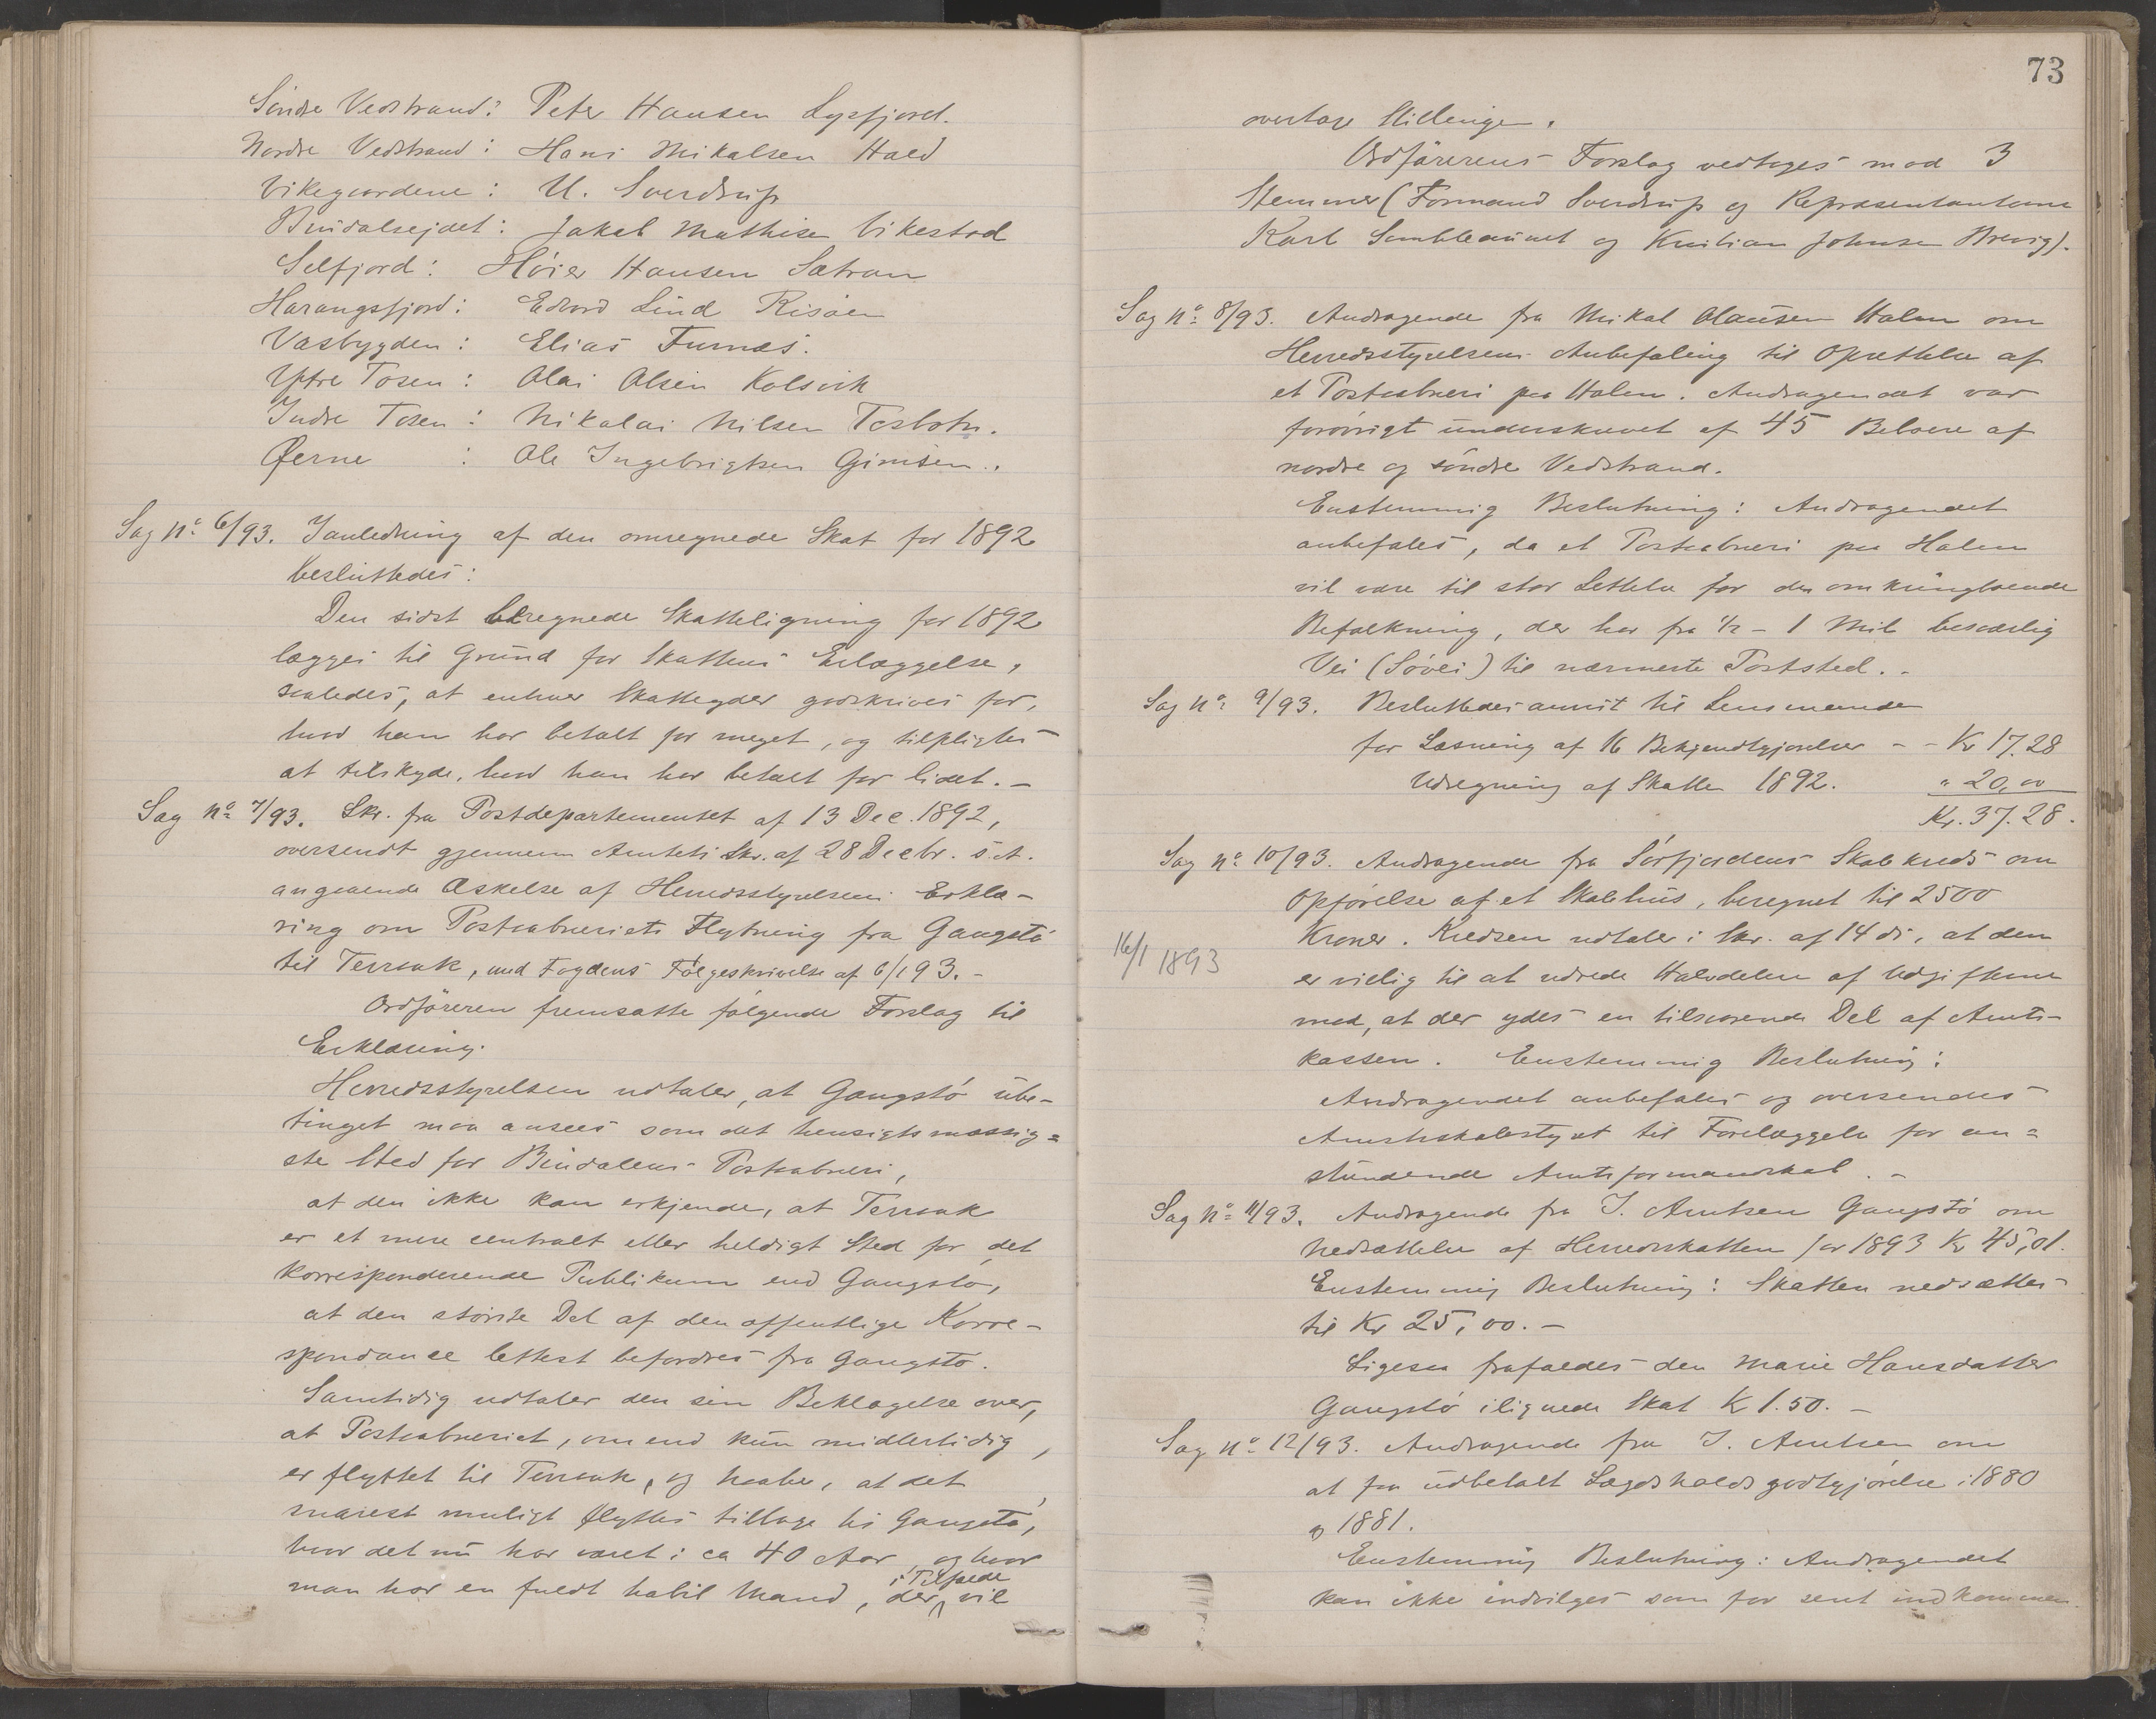 Söndre Vedstrand: Peter Hansen Lysfjord.
Nordre Vedstrand: Hans Mikalsen Hald
Vikegaardene: U. Sverdrup
Bindalsejdet: Jakob Mathisen Vikestad
Selfjord: Höier Hansen Sætran
Harangsfjord: Edvard Lind Risöen
Vasbygden: Elias Furnæs.
Ytre Tosen: Olai Olsen Kolsvik
Indre Tosen: Nikolai Nilsen Tosbotn.
Øerne : Ole Ingebrigtsen Gimsen.
Sag No 6/93. I anledning af den omregnede Skat for 1892
besluttedes:
Den sidst beregnede Skatteligning for 1892
lægges til Grund for Skattens Erlæggelse,
saaledes, at enhver Skatteyder godskrives for,
hvad han har betalt for meget, og tilpligtes
at tilskyde, hvad han har betalt for lidet. –
Sag No 7/93. Skr. fra Postdepartementet af 13 Dec. 1892,
oversendt gjennem Amtets Skr. af 28 Decbr. s.A.
angaaende Æskelse af Herredsstyrelsens Erklæ-
ring om Postaabneriets Flytning fra Gangstö
til Terraak, med Fogdens Fölgeskrivelse af 6/1 93. –
Ordföreren fremsatte fölgende Forslag til
Erklæring.
Herredsstyrelsen udtaler, at Gangstö ube-
tinget maa ansees som det hensigtsmæssig=
ste Sted for Bindalens Postaabneri,
at den ikke kan erkjende, at Terraak
er et mere centralt eller heldigt Sted for det
korresponderende Publikum end Gangstö,
at den störste Del af den offentlige Korre-
spondance lettest befordres fra Gangstö.
Samtidig udtaler den sin Beklagelse over,
at Postaabneriet, om end kun midlertidig,
er flyttet til Terraak, og haaber, at det
snarest muligt flyttes tilbage til Gangstö,
hvor det nu har været i ca 40 Aar, og hvor
man har en fuldt habil Mand, der i Tilfælde vil
73
overtage Stillingen.
Ordförerens Forslag vedtoges mod 3
Stemmer (Formand Sverdrup og Repræsentanterne
Karl Johnsen Brevig).
Sag No 8/93. Andragende fra Mikal Olausen Halen om
Herredsstyrelsens Anbefaling til Oprettelse af
et Postaabneri paa Halen. Andragendet var
forövrigt underskrevet af 45 Beboere af
nordre og söndre Vedstrand.
Enstemmig Beslutning: Andragendet
anbefales, da et Postaabneri paa Halen
vil være til stor Lettelse for den omkringboende
Befolkning, der har fra 1/2 – 1 Mil besværlig
Vei (Sövei) til nærmeste Poststed. –
Sag No 9/93. Besluttedes anvist til Lensmanden
for Læsning af 16 Bekjendtgjörelser – – Kr 17.28
Udregning af Skatten 1892. " 20,00
Kr. 37.28.
Sag No 10/93. Andragende fra Sörfjordens Skolekreds om
Opförelse af et Skolehus, beregnet til 2500
Kroner. Kredsen udtaler i Skr. af 14 ds, at den
16/1 1893
er villig til at udrede Halvdelen af Udgifterne
mod, at der ydes en tilsvarende Del af Amts-
kassen. Enstemmig Beslutning:
Andragendet anbefales og oversendes
Amtsskolestyret til Forelæggelse for an=
stundende Amtsformandskab. –
Sag No 11/93. Andragende fra I. Arntsen Gangstö om
Nedsættelse af Herredsskatten for 1893 Kr 45,01.
Enstemmig Beslutning: Skatten nedsættes
til Kr 25,00. –
Ligesaa frafaldes den Marie Hansdatter
Gangstö ilignede Skat Kr 1.50. –
Sag No 12/93. Andragende fra I. Arntsen om
at faa udbetalt Lægdsholds godtgjörelse i 1880
og 1881.
Enstemmig Beslutning: Andragendet
kan ikke indvilges som for sent indkommen